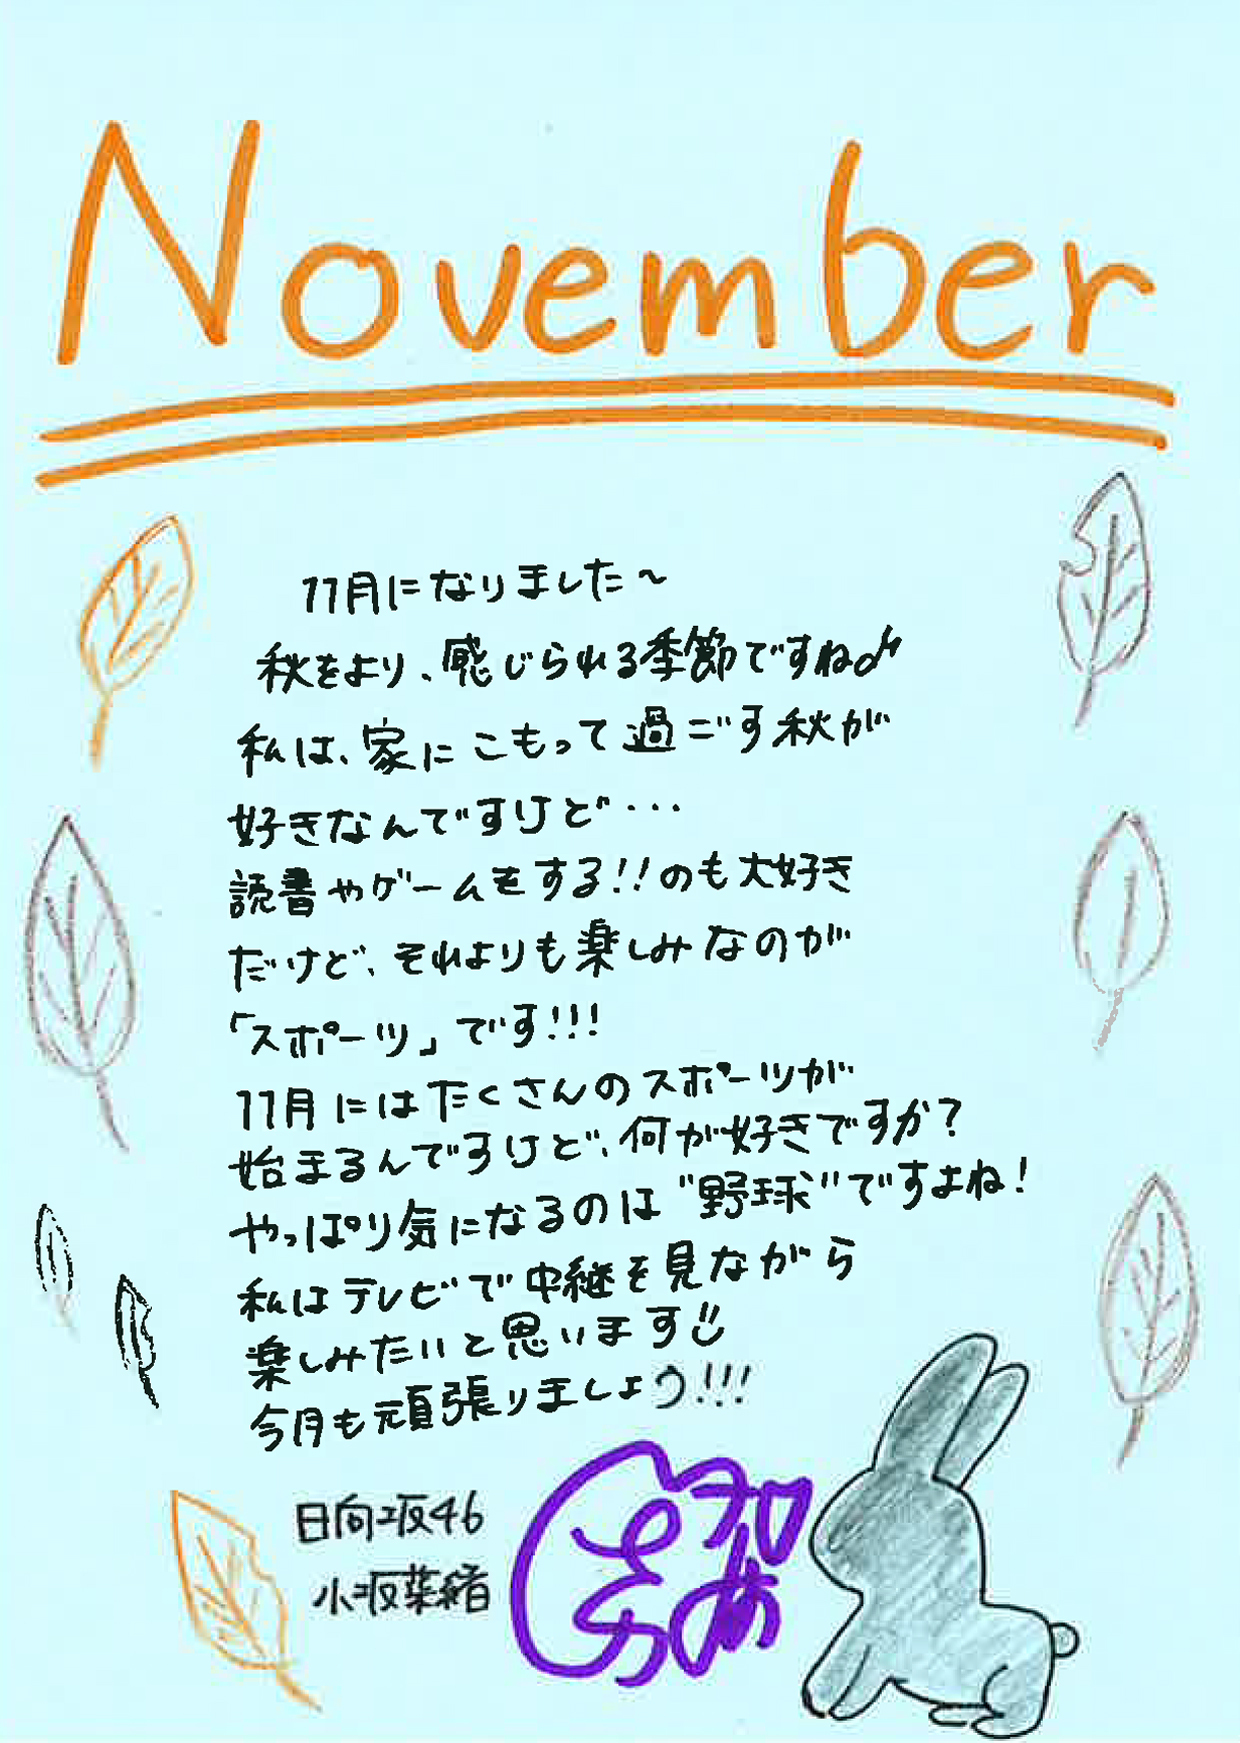 November
11月になりました～
秋をより、感じられる季節ですね♪
私は、家にこもって過ごす秋が
好きなんですけど・・・
読書やゲームをする!!のも大好き
だけど、それよりも楽しみなのが
「スポーツ」です!!!
11月にはたくさんのスポーツが
始まるんですけど、何が好きですか?
やっぱり気になるのは“野球”ですよね!
私はテレビで中継を見ながら
楽しみたいと思います
今月も頑張りましょう!!!
日向坂46
小坂菜緒